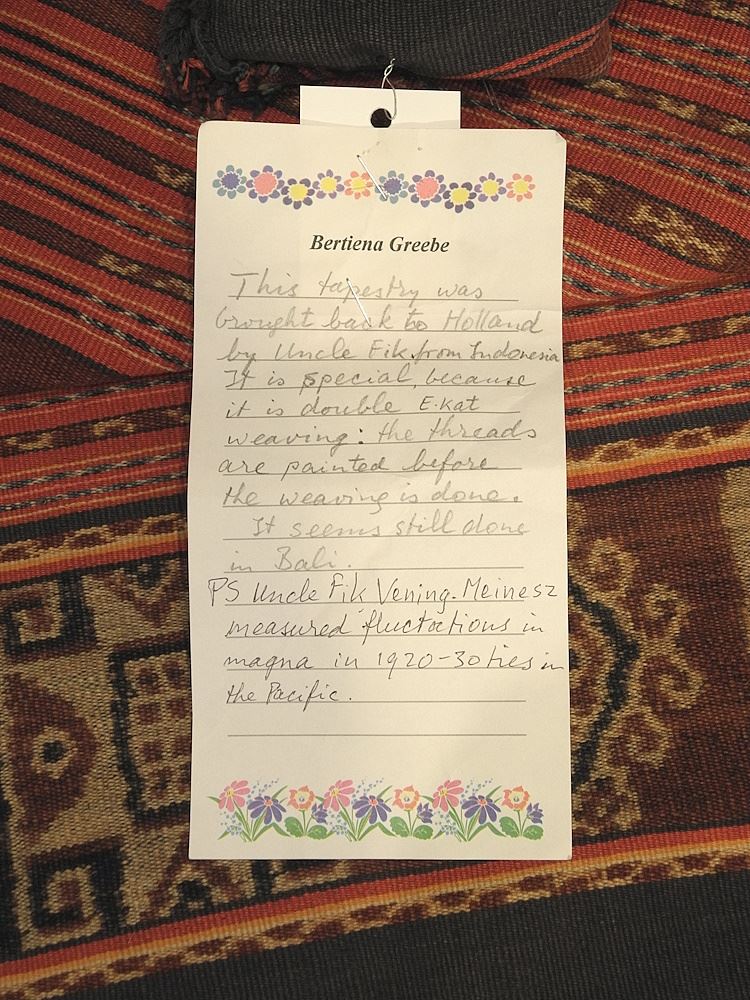 Bertiena Greebe
This tapestry was
brought back to Holland
by Uncle Fik from Indonesia
It is special, because
it is double E-kat
weaving: the threads
are painted before
the weaving is done.
It seems still done
in Bali.
PS Uncle Fik Vening-Meinesz
measured fluctations in
magna in 1920-30ties in
the Pacific.